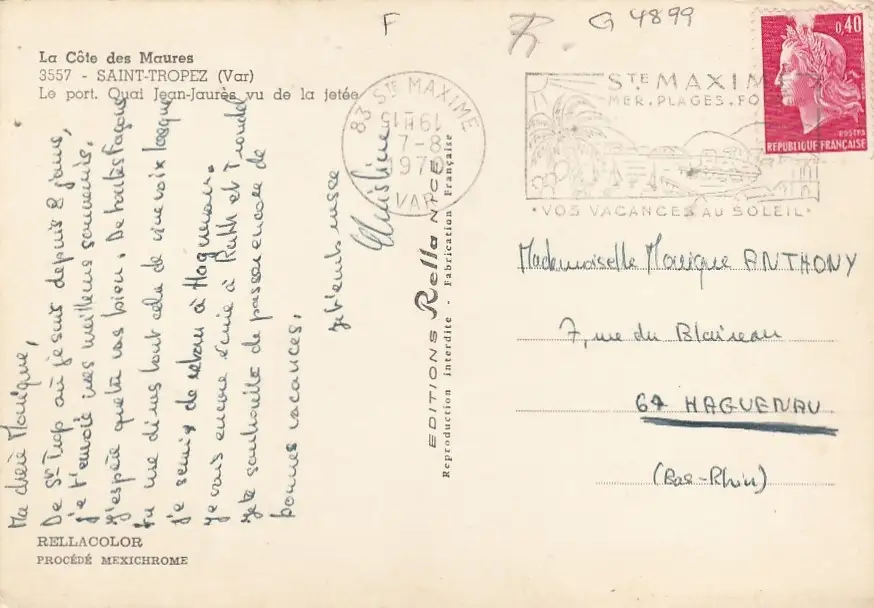 F
G 4899
La Côte des Maures
3557 - SAINT-TROPEZ (Var)
Le port. Quai Jean-Jaurès vu de la jetée
Ma chère Monique,
De St Trop où je suis depuis 8 jours,
je t'envoie mes meilleurs souvenirs.
J'espère que tu vas bien. De toutes façons
tu me diras tout cela de vive voix lorsque
je serais de retour à Haguenau.
Je vais encore écrire à Ruth et
Je te souhaite de passer encore de
bonnes vacances.
Je t'embrasse
Christine
RELLACOLOR
PROCÉDÉ MEXICHROME
EDITIONS Rella NICE
Reproduction interdite - Fabrication Française
83 STE MAXIME
15H 19
7-8
1970
VAR
STE MAXIM
MER.PLAGES.FO
•VOS VACANCES AU SOLEIL•
0,40
POSTES
REPUBLIQUE FRANÇAISE
Mademoiselle Monique ANTHONY
7, rue du Blaireau
67 HAGUENAU
(Bas-Rhin)